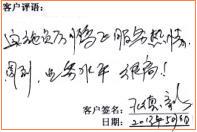 客户评语:
实施员万腾飞服务热情、
周到,业务水平很高!
客户签名:
日期: 2013年5月5日